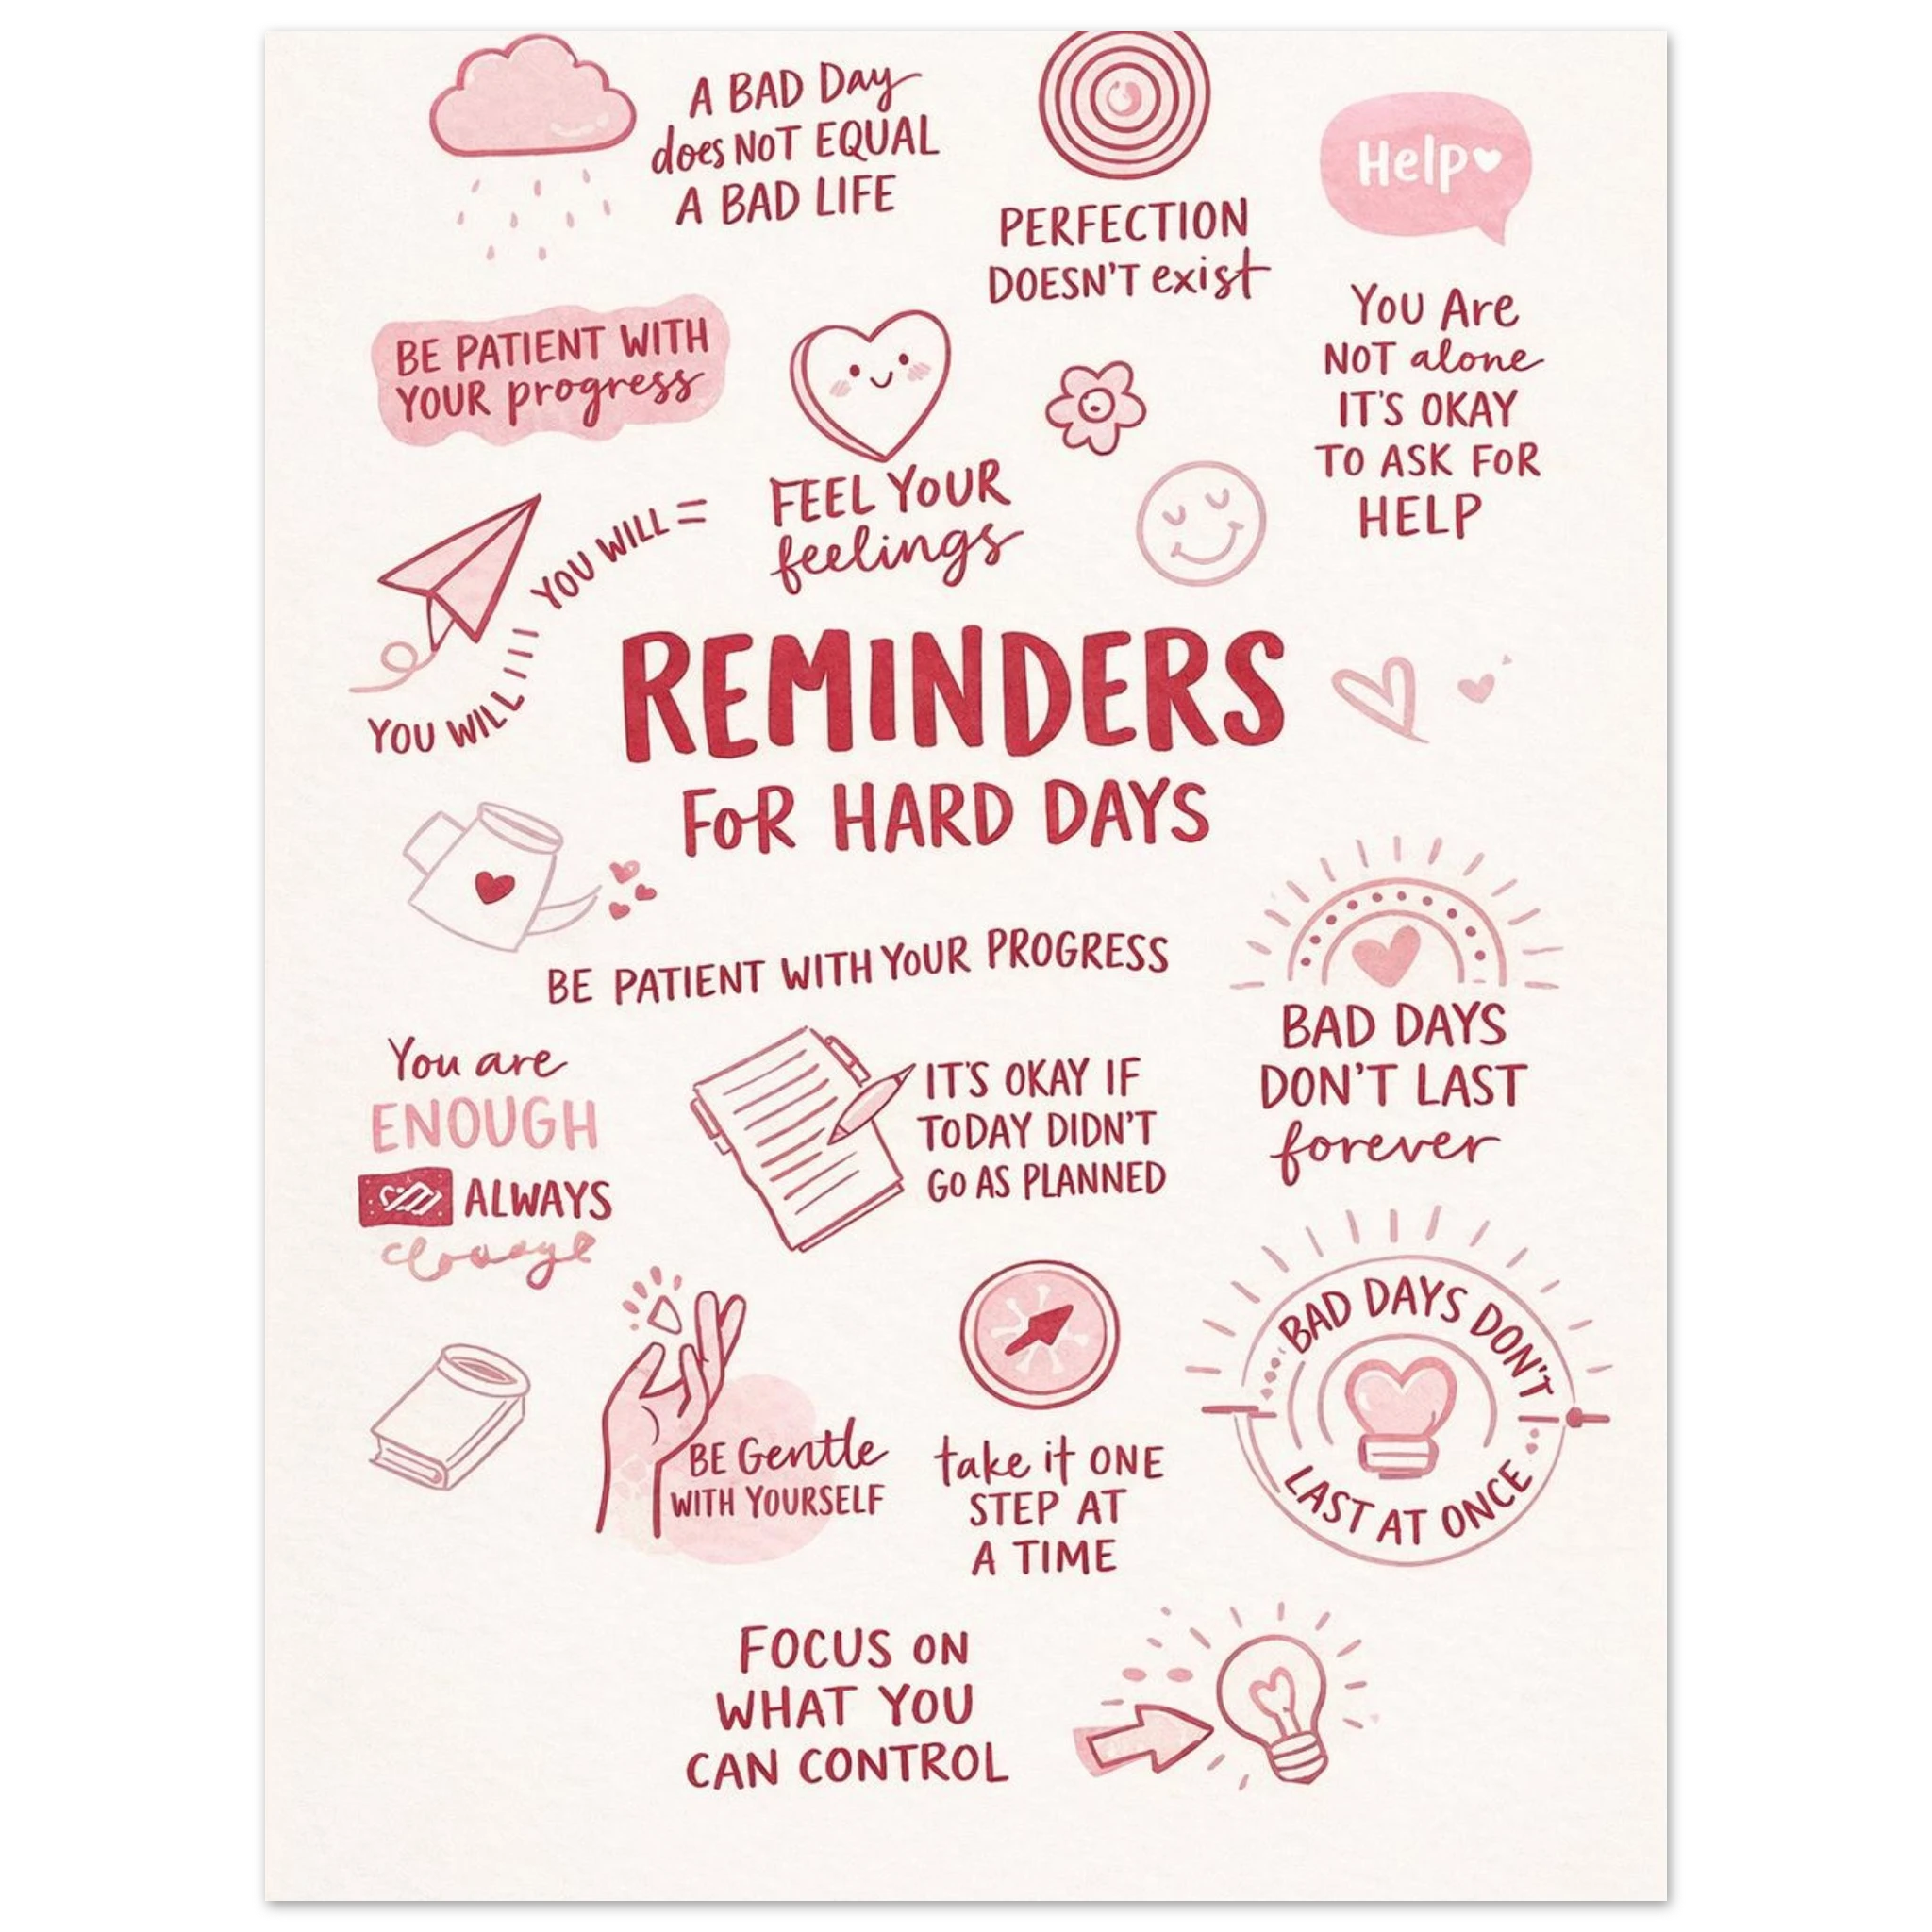 A BAD Day
does NOT EQUAL
A BAD LIFE
PERFECTION
DOESN'T exist
Help
You Are
NOT alone
IT'S OKAY
TO ASK FOR
HELP
BE PATIENT WITH
YOUR progress
FEEL YOUR
feelings
YOU WILL
YOU WILL
REMINDERS
FOR HARD DAYS
BE PATIENT WITH YOUR PROGRESS
You are
ENOUGH
ALWAYS
IT'S OKAY IF
TODAY DIDN'T
GO AS PLANNED
BAD DAYS
DON'T LAST
forever
BE Gentle
WITH YOURSELF
take it ONE
STEP AT
A TIME
BAD DAYS DON'T
LAST AT ONCE
FOCUS ON
WHAT YOU
CAN CONTROL